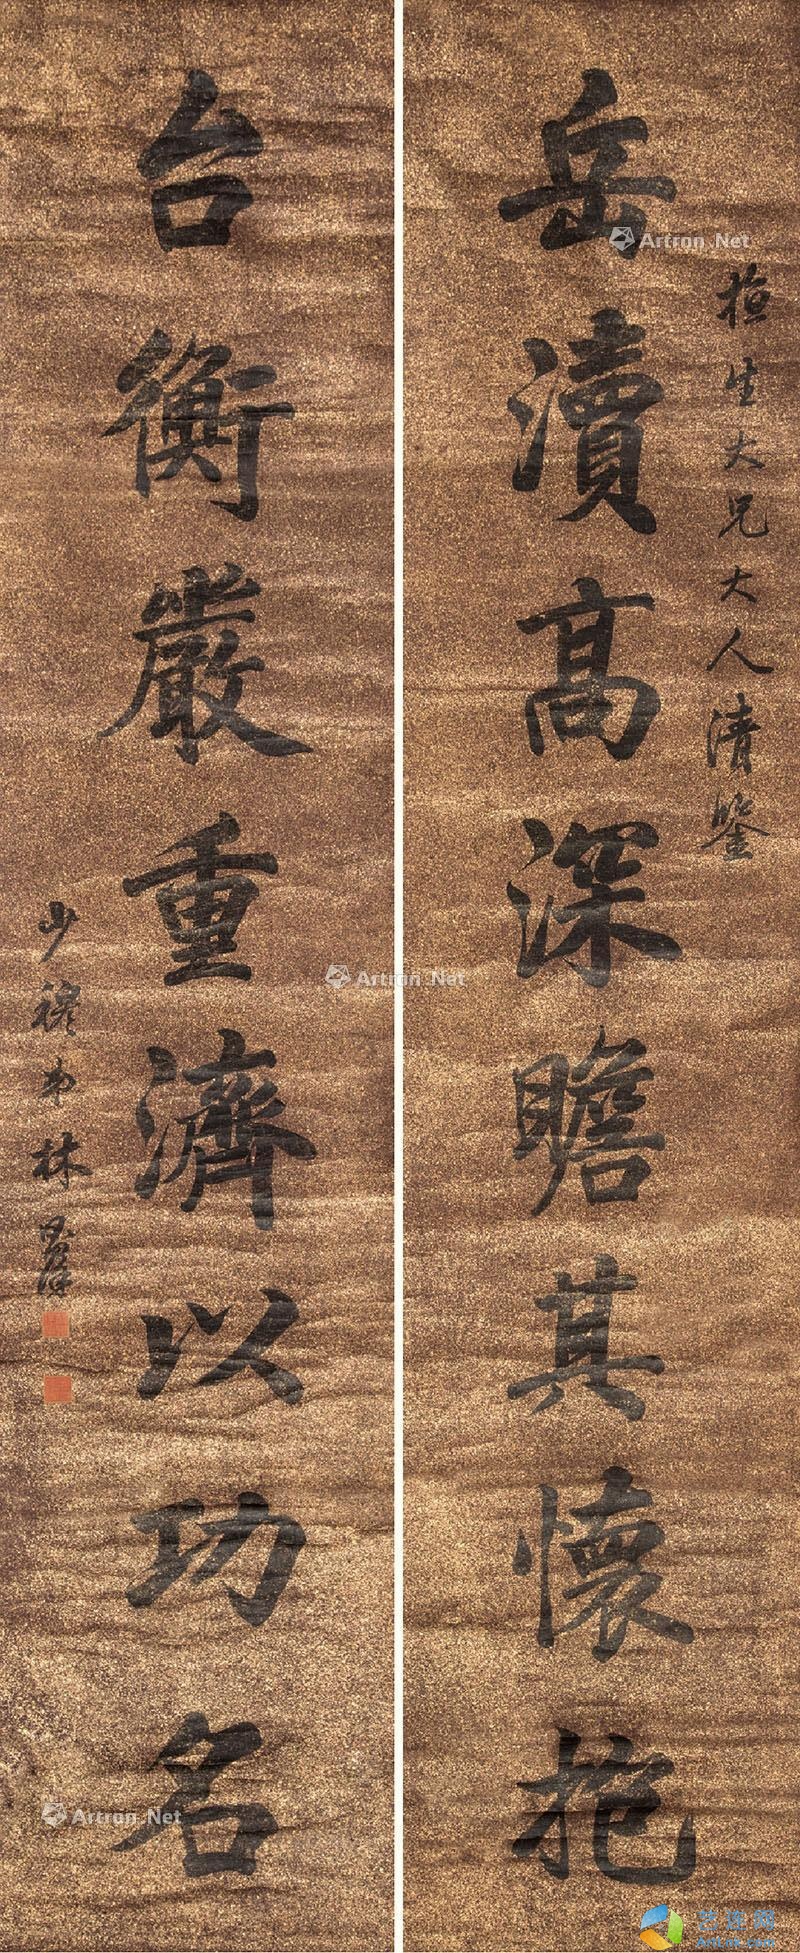 岳瀆高深瞻其懷抱
植生大兄大人清鑒
台衡嚴重濟以功名
少穆弟林則徐
Artron.Net
Artron.Net
Artron.Net